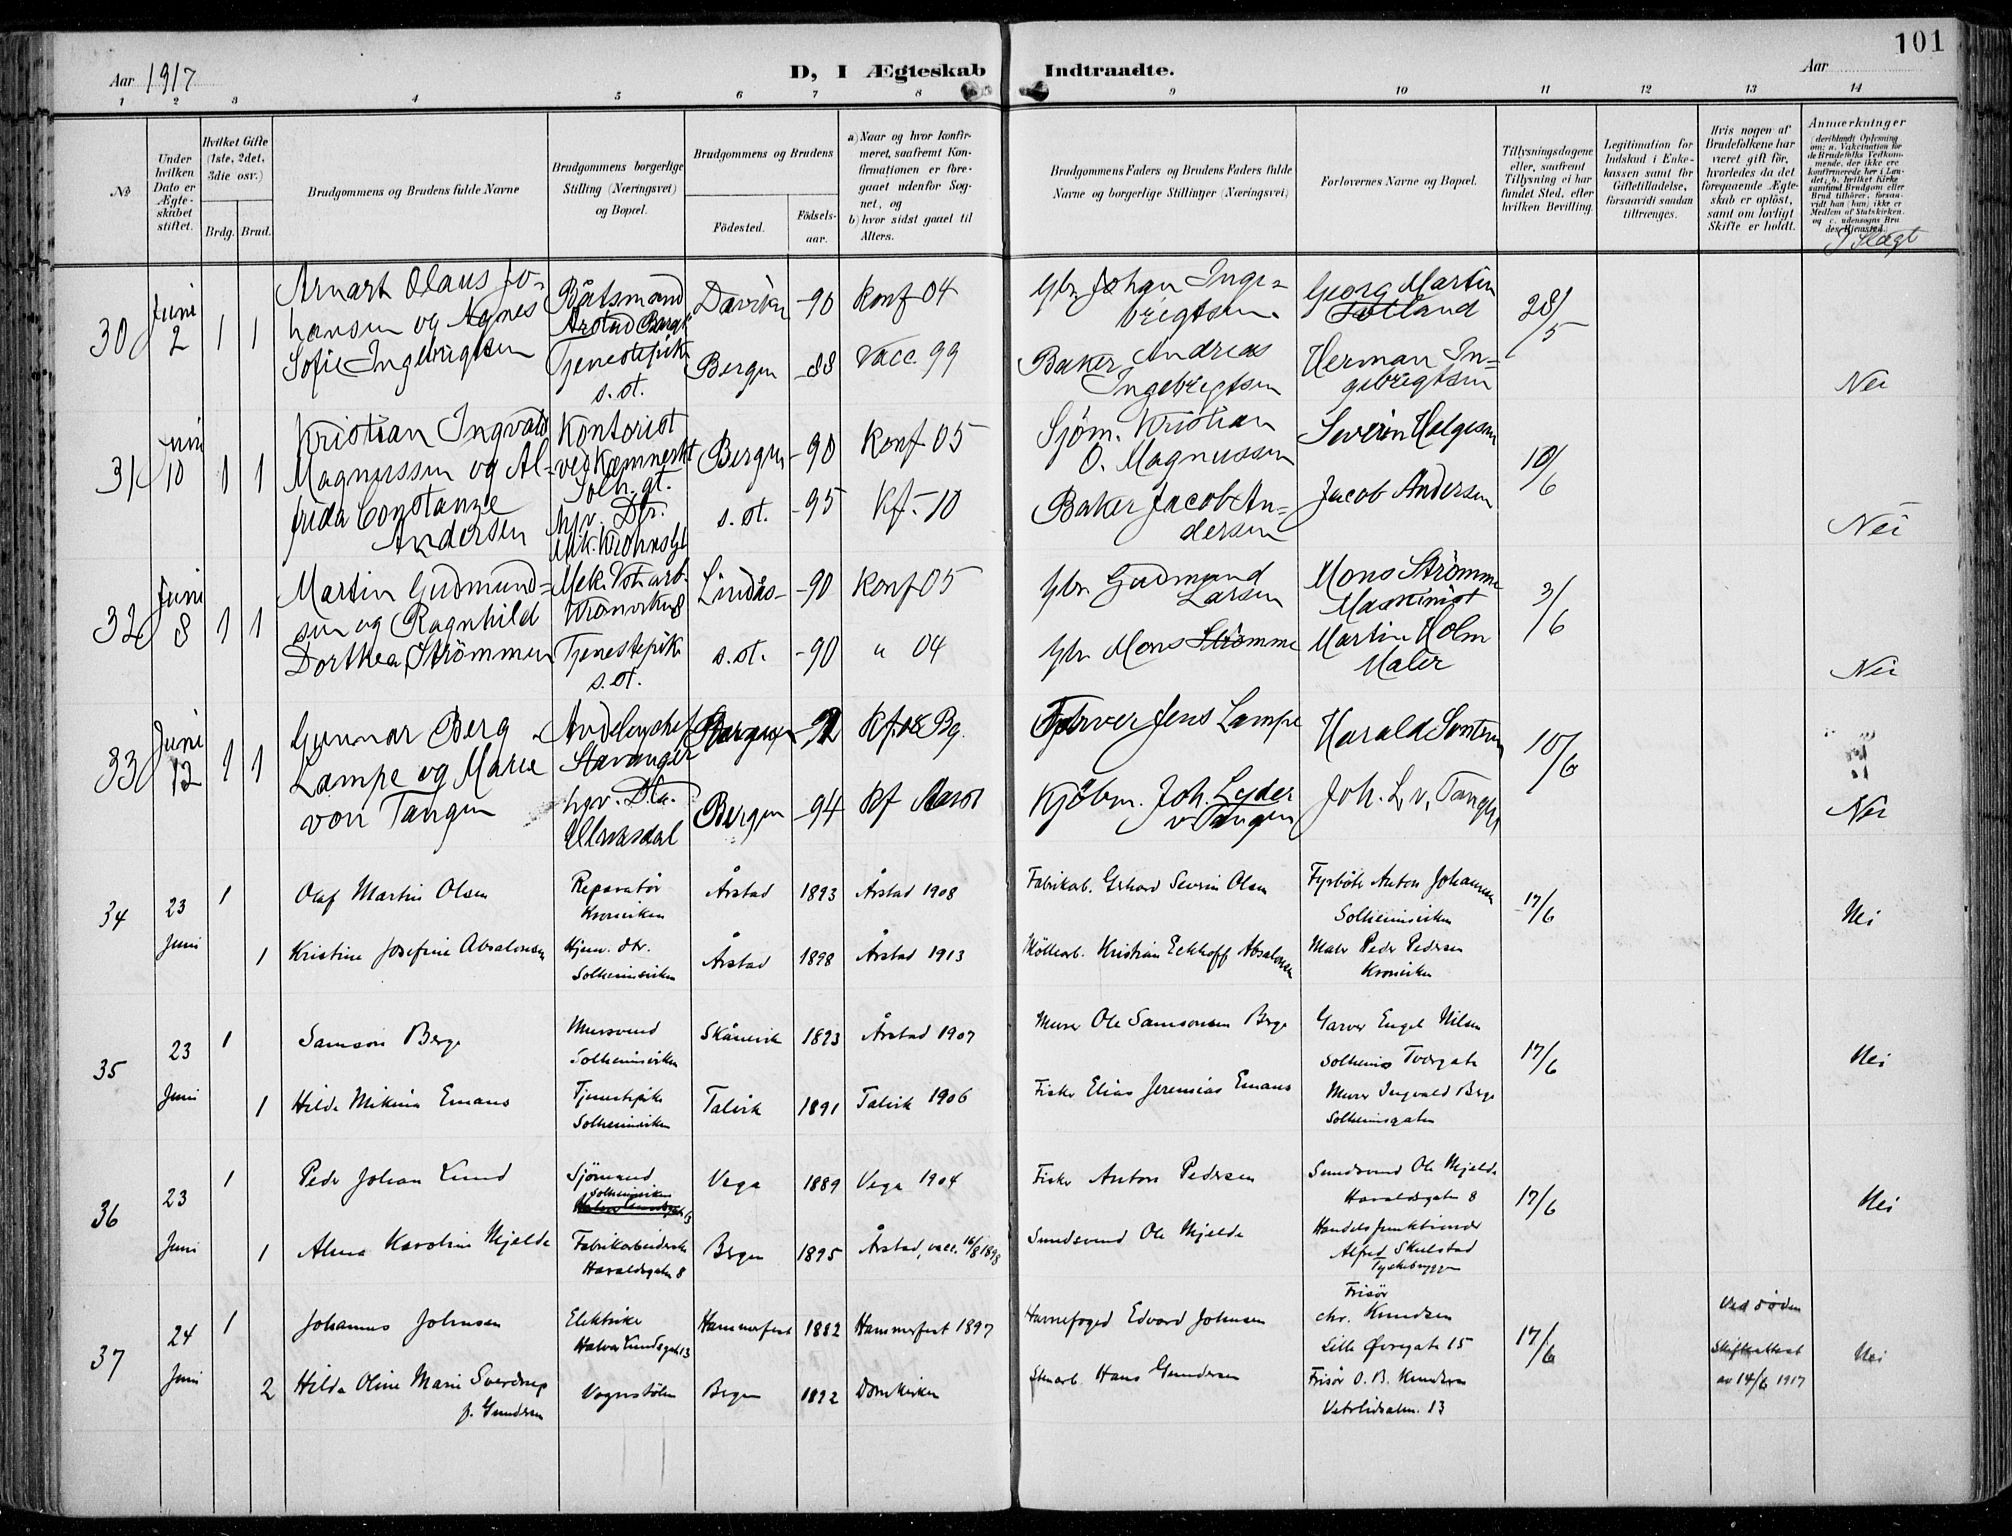 101
Aar 1917
D, I Ægteskab Indtraadte.
Aar
1 2 3 4 5 6 7 8 9 10 11 12 13 14
No
Under hvilken Dato er Ægteskabet stiftet.
Hvilket Gifte (1ste, 2det, 3die osv.)
Brdg. Brud.
Brudgommens og Brudens fulde Navne
Brudgommens borgerlige Stilling (Næringsvei) og Bopæl.
Brudgommens og Brudens
Födested. Födsels-aar.
a) Naar og hvor konfirmeret, saafremt Konfirmationen er foregaaet udenfor Sognet, og
b) hvor sidst gaaet til Alters.
Brudgommens Faders og Brudens Faders fulde Navne og borgerlige Stillinger (Næringsvei)
Forlovernes Navne og Bopæl.
Tillysningsdagene eller, saafremt Tillysning ei har fundet Sted, efter hvilken Bevilling.
Legitimation for Indskud i Enkekassen samt for Giftetilladelse, forsaavidt saadan tiltrænges.
Hvis nogen af Brudefolkene har været gift för, hvorledes da det foregaaende Ægteskab er oplöst, samt om lovligt Skifte er holdt.
Anmærkninger
30 Juni 2 1 1
Arnart Olaus Johansen og Agnes Sofie Ingebrigtsen
Båtsmand Årstad Tjenestepike s.st.
Daviken -90 Konf 04
Bergen -88 Vacc. 99
Gbr. Johan Ingebrigtsen
Baker Andreas Ingebrigtsen
Georg Martin
Herman Ingebrigtsen
28/5
Nei
31 Juni 10 1 1
Kristian Ingvald Magnussen og Alfrida Constanze Andersen
Kontorist ved Kæmnerkt Solh.gt.
Hjv. Dtr.
Bergen -90 Konf 05
s.st. -95 Kf. 10
Sjöm. Kristian O. Magnussen
Baker Jacob Andersen
Severin Helgesen
Jacob Andersen
10/6
Nei
32 Juni 8 1 1
Martin Gudmundsen og Ragnhild Dorthea Strömmen
Mek. Vst. arb. Kronviken
Tjenestepike s.st.
Lindås -90 Konf 05
s.st. -90 " 04
Gbr. Gudmund Larsen
Gbr. Mons Strömme
Mons Strömme Maskinist
Martin Holm Maler
3/6
Nei
33 Juni 12 1 1
Gunnar Berg Lampe og Marie von Tangen
Avdelingschef Stavanger
hjv. Dtr.
Bergen -92 Kf. 08 Bg.
Bergen -94 Kf
Farver Jens Lampe
Kjöbm. Joh. Lyder v Tangen
Harald Sontum
Joh. L. v. Tangen
10/6
Nei
34 23 Juni 1
Olaf Martin Olsen
Reparatör Kronviken
Årstad 1893 Årstad 1908
Fabrikab. Gerhard Severin Olsen
Fyrböte Anton Johansen Solheimsviken
17/6
Nei
1 Kristine Josefine Absalonsen
Hjem. dtr. Solheimsviken
Årstad 1898 Årstad 1913
Möllearb. Kristian Eckhoff Absalonsen
Maler Peder Pedersen Kronviken
35 23 Juni 1
Samson Berge
Mursvend Solheimsviken
Skånevik 1893 Årstad 1907
Murer Ole Samsonsen Berge
Garver Engel Nilsen Solheims Tvergate
17/6
Nei
1 Hilda Mikina Emaus
Tjenestepike Solheimsviken
Talvik 1891 Talvik 1906
Fisker Elias Jeremias Emaus
Murer Ingvald Berge Solheimsgaten
36 23 Juni 1
Peder Johan Lund
Sjömand Solheimsviken
Vega 1889 Vega 1904
Fisker Anton Pedersen
Smedsvend Ole Mjelde Haraldsgaten 8
17/6
Nei
1 Alma Karoline Mjelde
Fabrikarbeiderske Haraldsgaten 8
Bergen 1895 Årstad, vacc. 16/8 1898
Smedsvend Ole Mjelde
Handelsfunktionær Alfred Skulstad Tyskebryggen
37 24 Juni 1
Johannes Johnsen
Elektriker Halvor Lundsgate 13
Hammerfest 1882 Hammerfest 1897
Havnefoged Edvard Johnsen
Frisör Chr. Knudsen Lille Övregate 15
17/6
Ved döden
Skifteattest av 14/6 1917
Nei
2 Hilda Oline Marie Sverdrup f. Gundersen
Vognstölen
Bergen 1892 Domkirken
Stenarb. Hans Gundersen
Frisör O. B. Knudsen Vetrlidsalm. 13